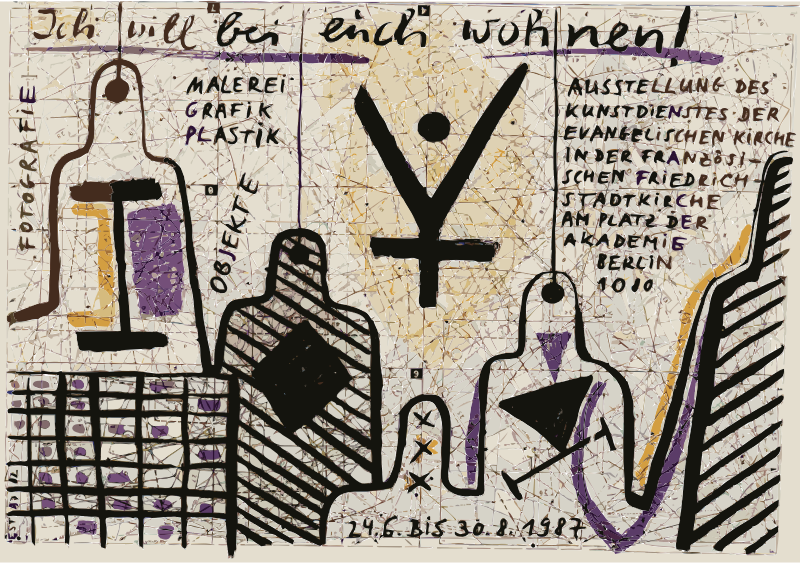 Ich will bei euch wohnen!
FOTOGRAFIE
MALEREI
GRAFIK
PLASTIK
OBJEKTE
AUSSTELLUNG DES
KUNSTDIENSTES DER
EVANGELISCHEN KIRCHE
IN DER FRANZÖSI-
SCHEN FRIEDRICH-
STADTKIRCHE
AM PLATZ DER
AKADEMIE
BERLIN
1080
24.6. BIS 30.8.1987